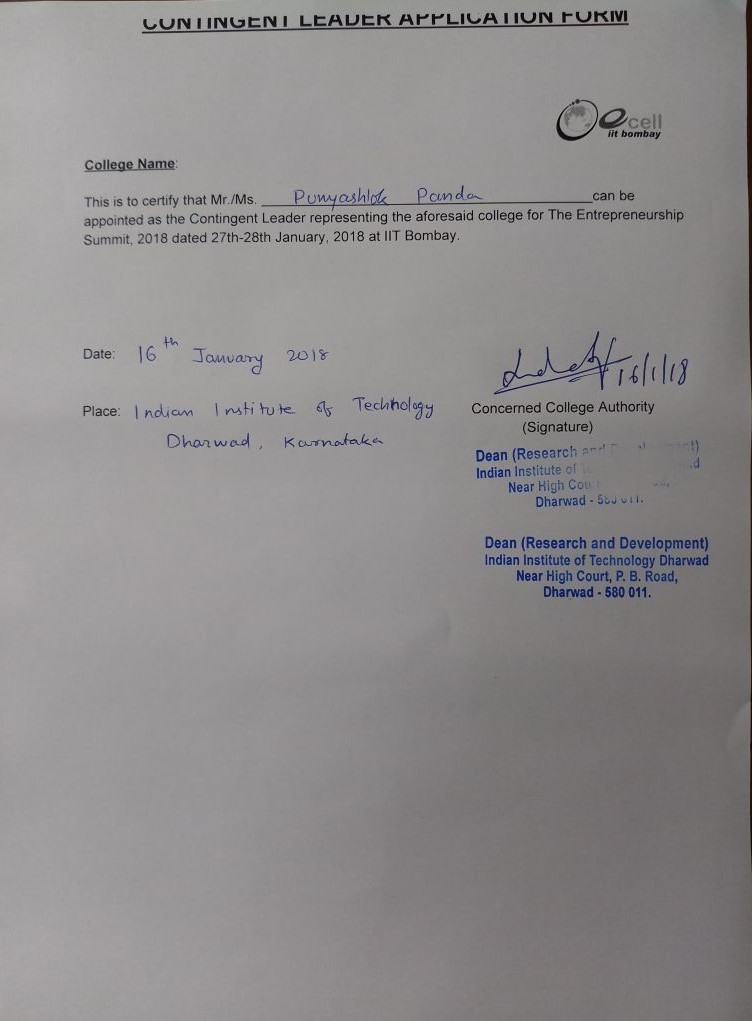 CONTINGENT LEADER APPLICATION FORM
ecell
iit bombay
College Name:
This is to certify that Mr./Ms. Punyashlok Panda can be
appointed as the Contingent Leader representing the aforesaid college for The Entrepreneurship
Summit, 2018 dated 27th-28th January, 2018 at IIT Bombay.
Date: 16th January 2018
16/1/18
Place: Indian Institute of Technology
Dharwad, Karnataka
Concerned College Authority
(Signature)
Dean (Research and
Indian Institute of
Near High
Dharwad - 580 011.
Dean (Research and Development)
Indian Institute of Technology Dharwad
Near High Court, P. B. Road,
Dharwad - 580 011.